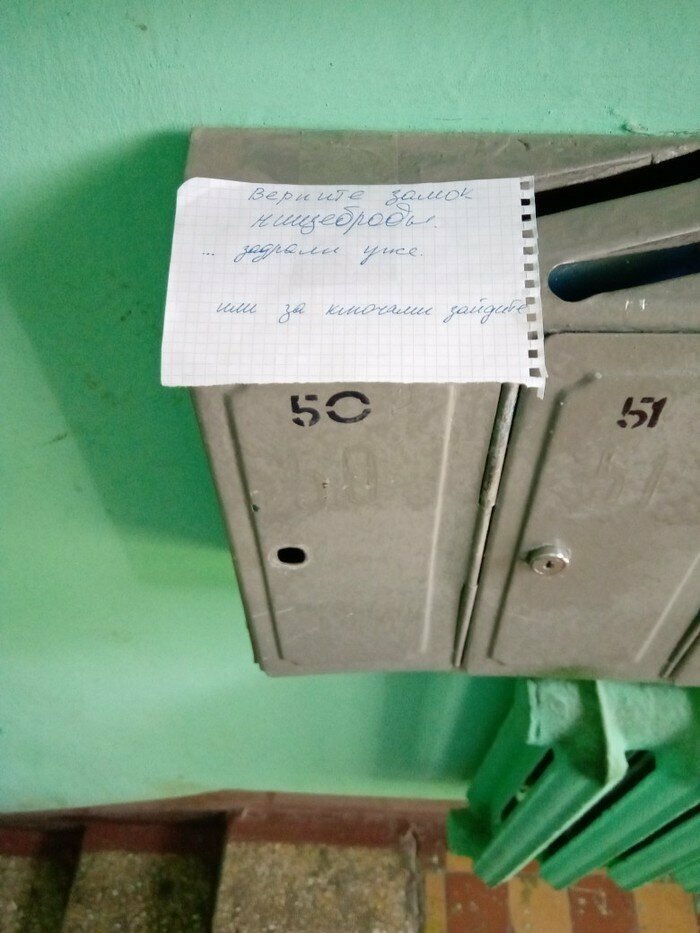 Верните замок
нищеброды.
... задрали уже.
или за ключами зайдите
50
51